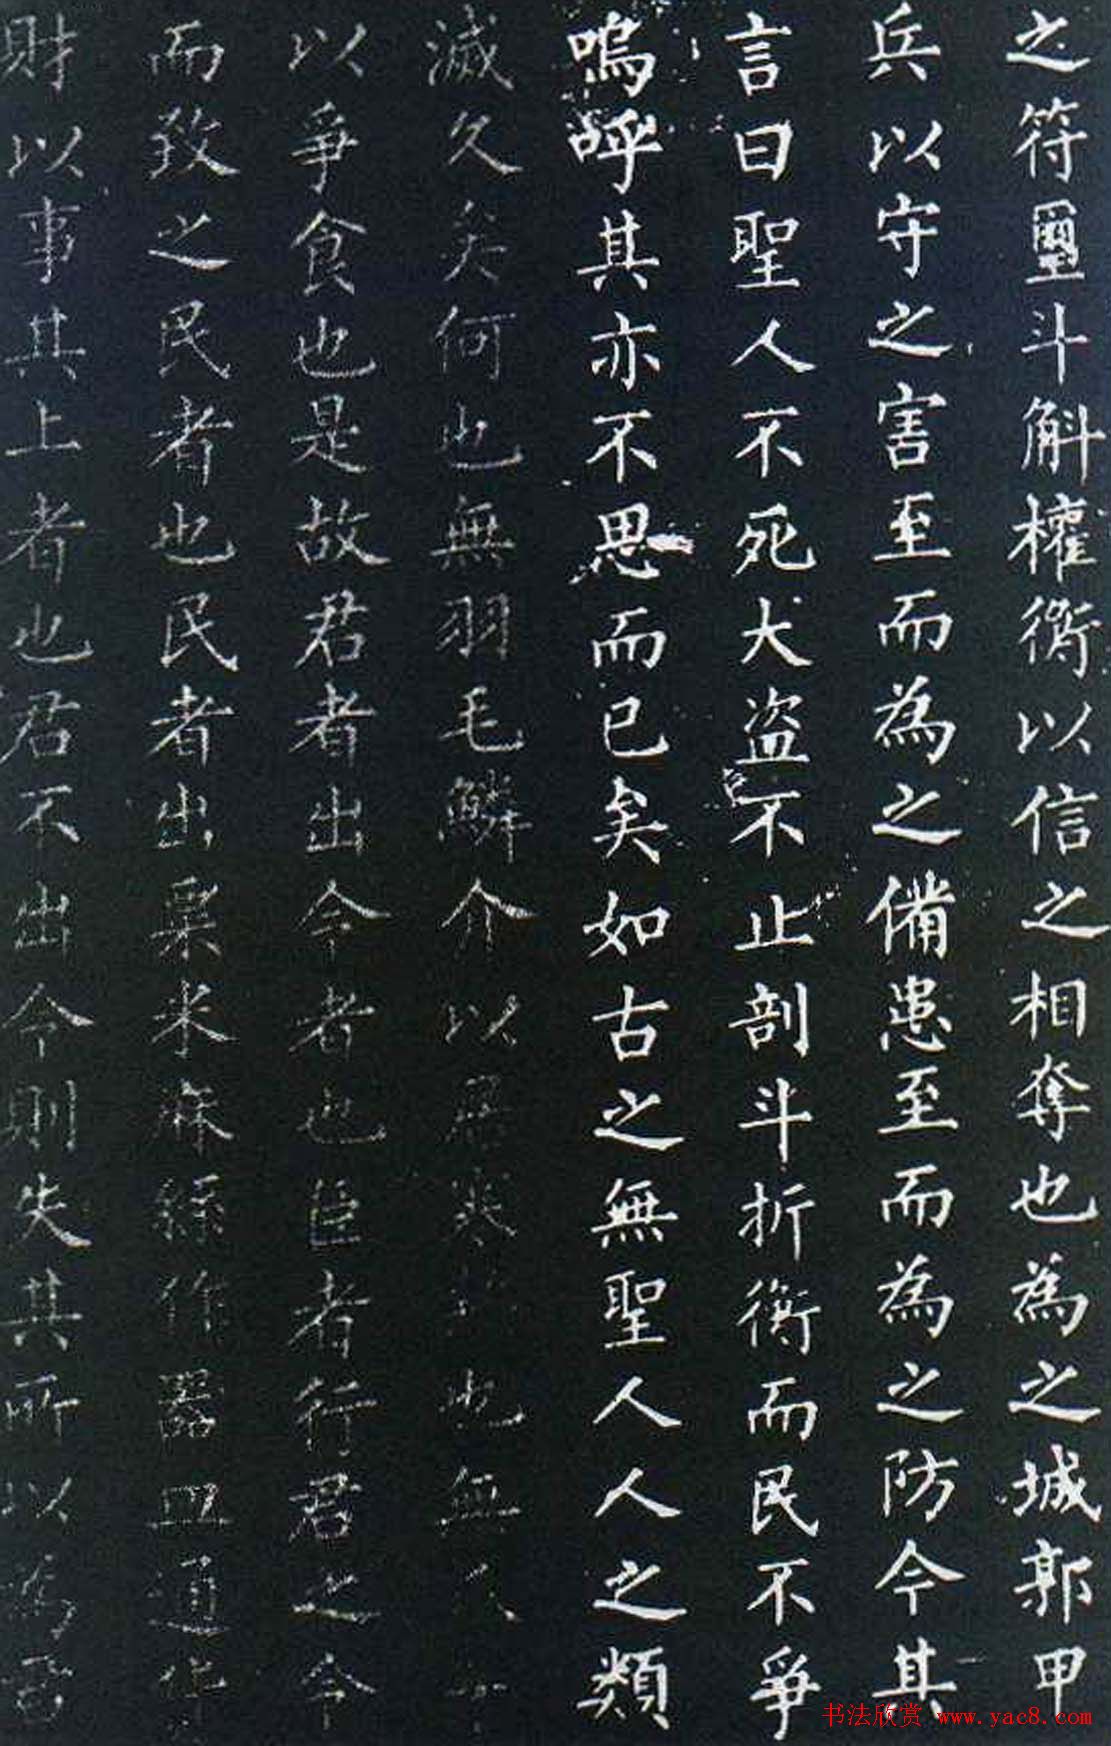 之符璽斗斛權衡以信之相奪也為之城郭甲
兵以守之害至而為之備患至而為之防今其
言曰聖人不死大盗不止剖斗折衡而民不爭
嗚呼其亦不思而已矣如古之無聖人人之類
滅久矣何也無羽毛鱗介以居寒也無爪
以爭食也是故君者出令者也臣者行君之令
而致之民者也民者出粟米麻絲作器皿通
財以事其上者也君不出令則失其所以為君
书法欣赏 www.yac8.com